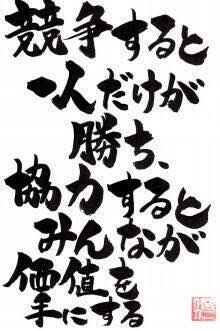 競争すると
一人だけが
勝ち、
協力すると
みんなが
価値を
手にする